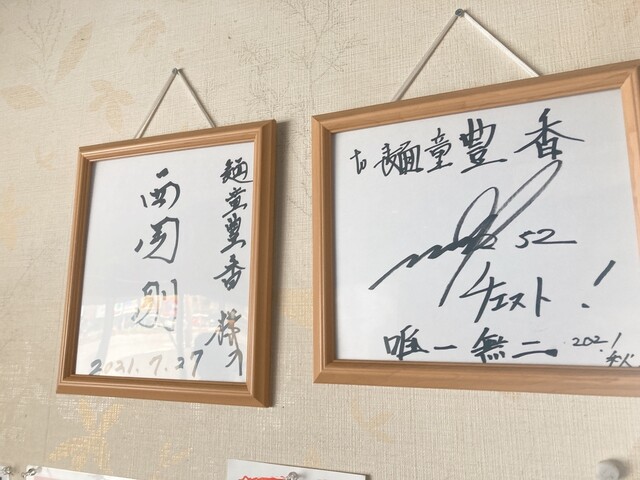 麺童豊香 様へ
西岡剛
2021.7.27
to 麺童豊香
52
チェスト!
唯一無二
2021